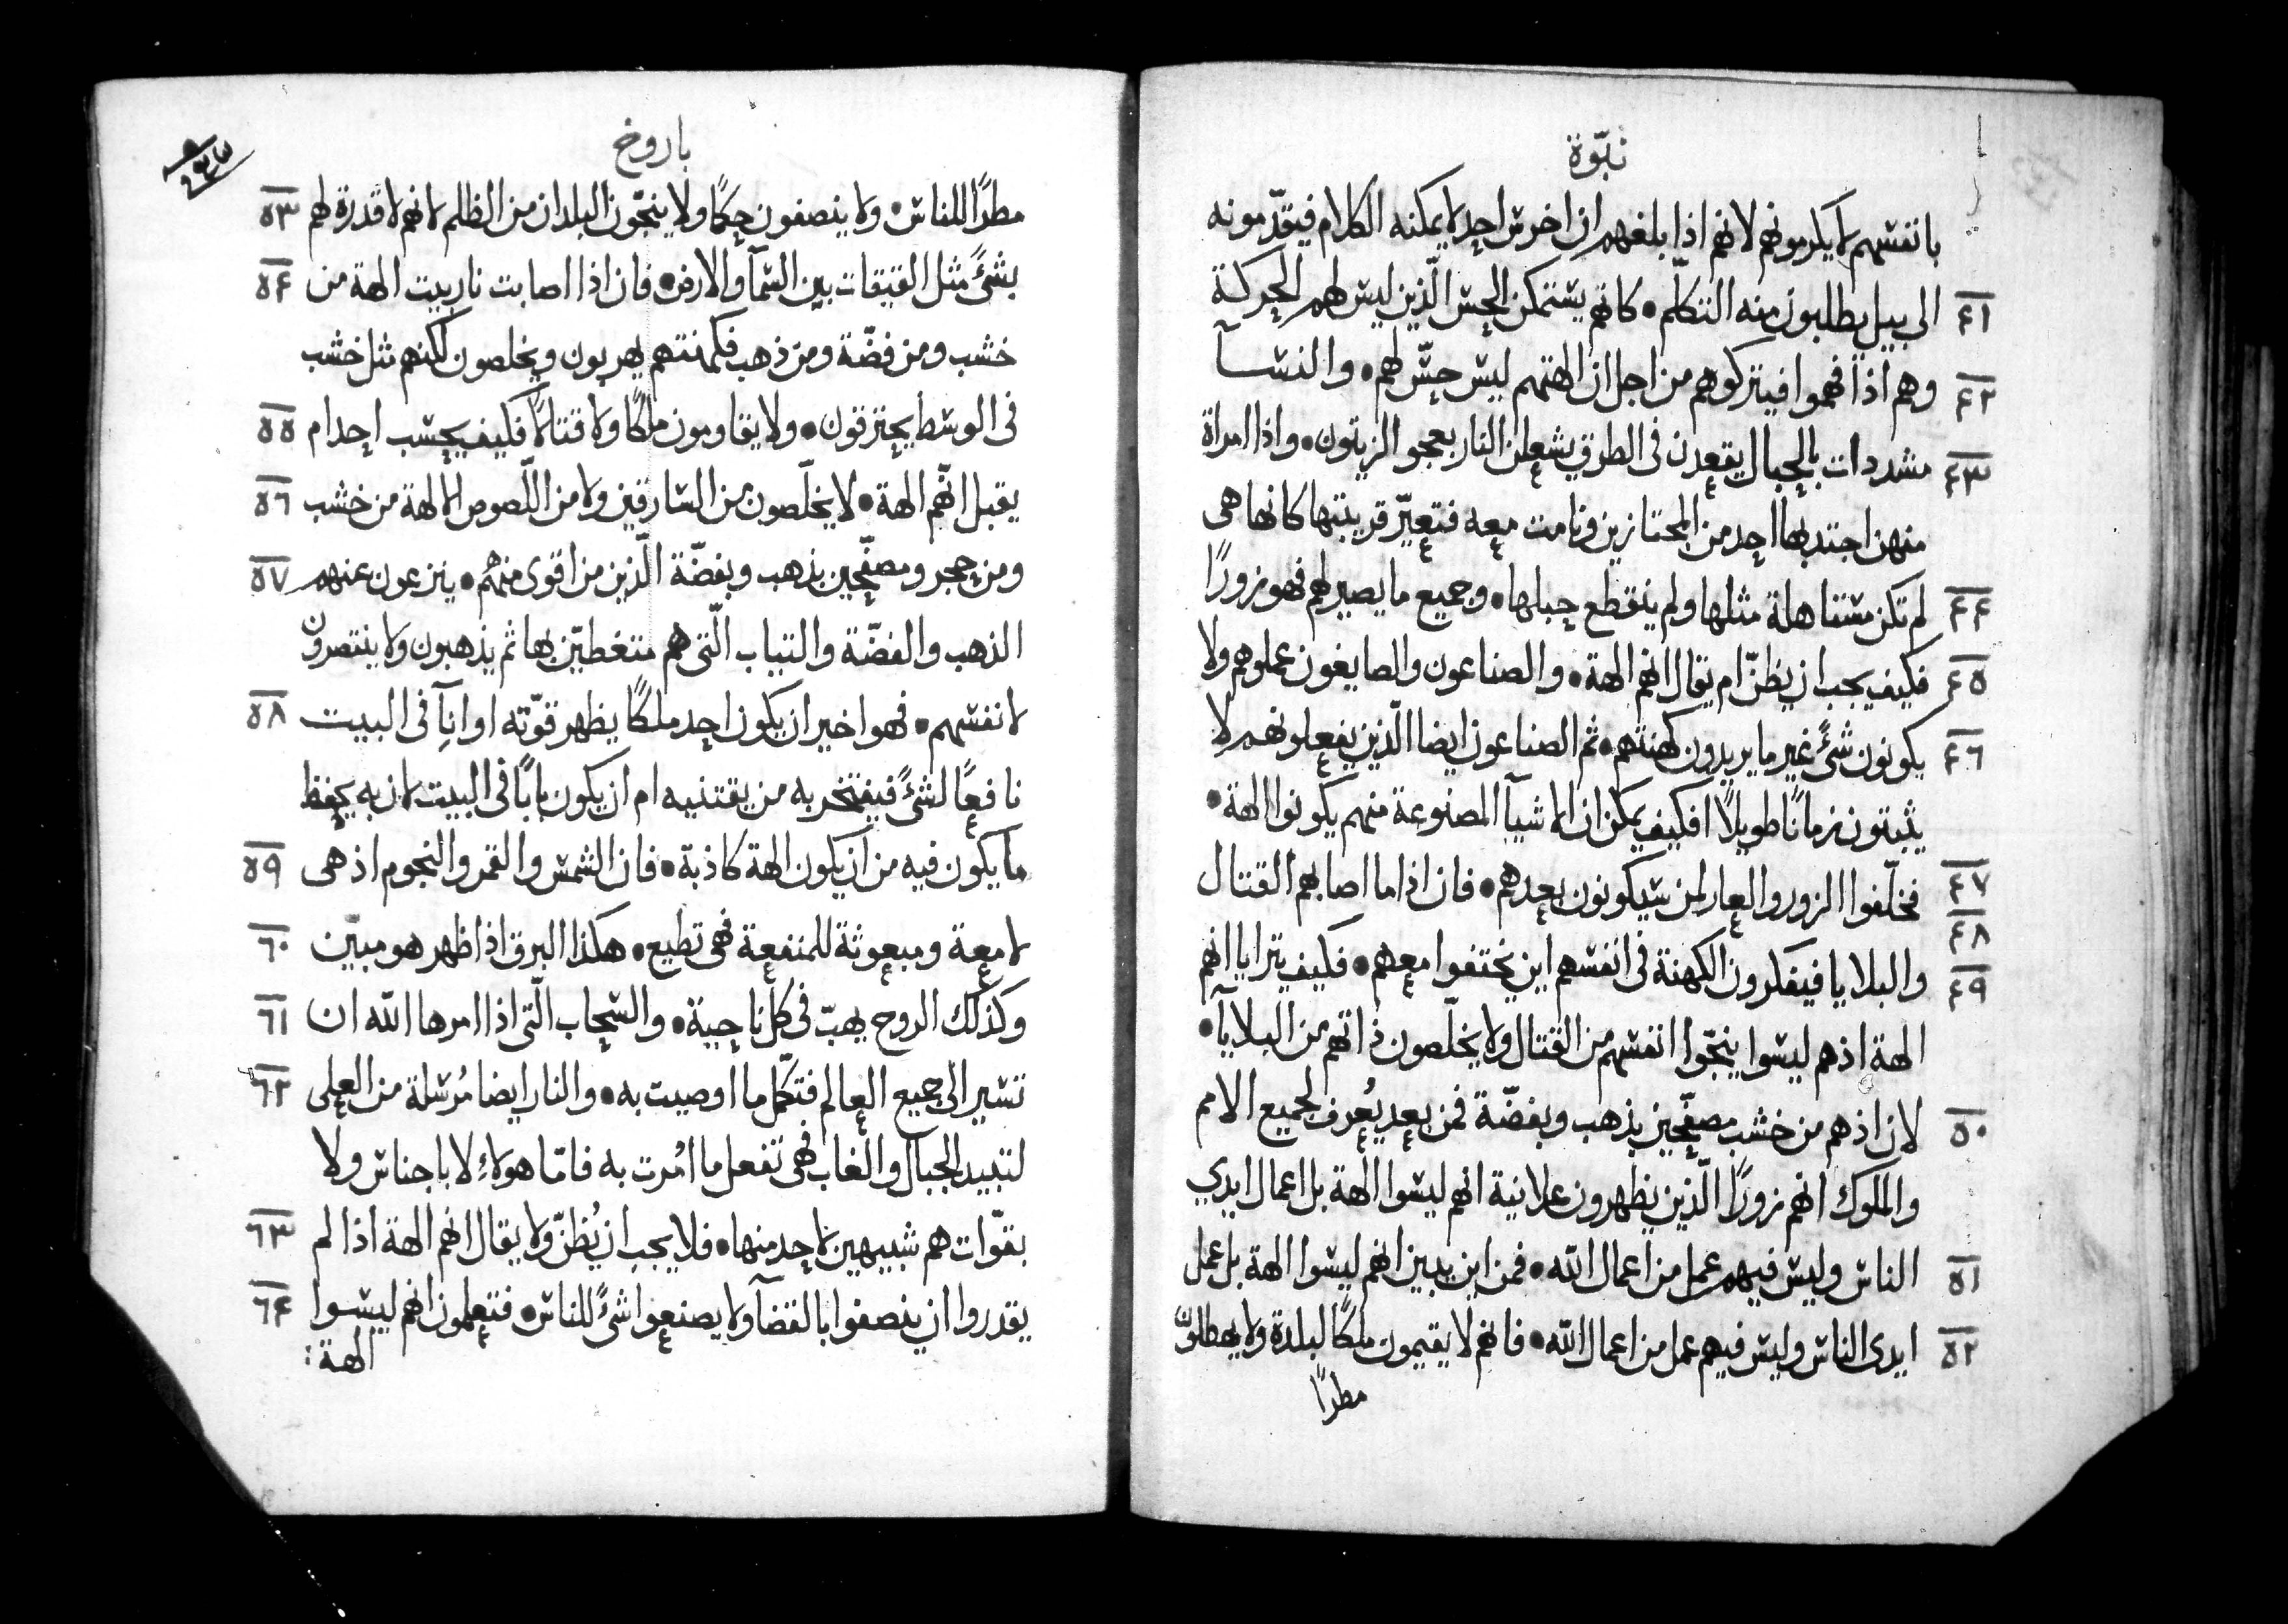 نبوّة
بانفسهم لا يكرمونهم لانهم اذا بلغهم ان اخرس احد لا يمكنه الكلام فيقدّمونه
٤١ الى بيل يطلبون منه التكلّم • كانهم يستمكن الحس الّذين ليس لهم الحركة
٤٢ وهم اذا فهموا فيتركوهم من اجل ان الهتهم ليس حسّ لهم • والنسآ
٤٣ مشددات بالحبال يقعدن فى الطرق يشعلن النار بعجو الزيتون • واذا امراة
منهن اجتدبها احد من المجتازين ونامت معه فتعيّر قرينتها كانها هى
٤٤ لم تكن مستاهلة مثلها ولم ينقطع حبلها • وجميع ما يصير لهم فهو زورًا
٤٥ فكيف يجب ان يظنّ ام يقال انهم الهة • والصناعون والصايغون عملوهم ولا
٤٦ يكونون شئً غير ما يريدون كهنتهم • ثم الصناعون ايضا الّذين يفعلونهم لا
يثبتون زمانًا طويلاً افكيف يمكن ان الاشيآ المصنوعة منهم يكونوا الهة •
٤٧ فخلّفوا الزور والعار لمن سيكونون بعدهم • فان اذا ما اصابهم القتال
٤٨
٤٩ والبلايا فيفكرون الكهنة فى انفسهم اين يختفوا معهم • فكيف يترايا انهم
الهة اذهم ليسوا ينجّوا انفسهم من القتال ولا يخلّصون ذاتهم من البلايآ •
٥٠ لان اذهم من خشب مصفّحين بذهب وبفضّة فمن بعد يُعرف لجميع الامم
والملوك انهم زورًا الّذين يظهرون علانية انهم ليسوا الهة بل اعمال ايدي
٥١ الناس وليس فيهم عمل من اعمال الله • فمن اين يبين انهم ليسوا الهة بل عمل
٥٢ ايدى الناس وليس فيهم عمل من اعمال الله • فانهم لا يقيمون ملكًا لبلدة ولا يهطلون
مطرًا
باروخ
مطرًا للناس • ولا ينصفون حكمًا ولا ينجّون البلدان من الظلم لانهم لا قدرة لهم ٥٣
بشئً مثل القيقات بين السمآ والارض • فان اذا اصابت نار بيت الهة من ٥٤
خشب ومن فضّة ومن ذهب فكهنتهم يهربون ويخلصون لكنهم مثل خشب
فى الوسط يحترقون • ولا يقاومون ملكًا ولا قتالاً فكيف يحسب احد ام ٥٥
يقبل انّهم الهة • لا يخلّصون من السارقين ولا من اللّصوص الالهة من خشب ٥٦
ومن حجر ومصفّحين بذهب وبفضّة الّذين من اقوى منهُم • ينزعون عنهم ٥٧
الذهب والفضّة والتياب الّتى هم متغطيّين بها ثم يذهبون ولا ينتصرون
لانفسهم • فهوا خير ان يكون احد ملكًا يظهر قوّته او انآِ فى البيت ٥٨
نافعًا لشئً فيفتخر به من يقتنيه ام ان يكون بابًا فى البيت لان به يحفظ
ما يكون فيه من ان يكون الهة كاذبة • فان الشمس والقمر والنجوم اذ هى ٥٩
لامعة ومبعوثة للمنفعة فهى تطيع • هكذا البرق اذا ظهر هو مبيّن ٦٠
وكذلك الروح يهبّ فى كل ناحية • والسحاب الّتى اذا امرها الله ان ٦١
تسير الى جميع العالم فتكمّل ما اوصيت به • والنار ايضا مُرسلة من العلى ٦٢
لتبيد الجبال والغاب فهى تفعل ما اُمرت به فامّا هولاءِ لا باجناس ولا
بقوّات هم شبيهين لاحد منها • فلا يجب ان يُظنّ ولا يقال انهم الهة اذا لم ٦٣
يقدروا ان ينصفوا بالقضآ ولا يصنعوا شئً للناس • فتعلمون انهم ليسوا ٦٤
الهة :